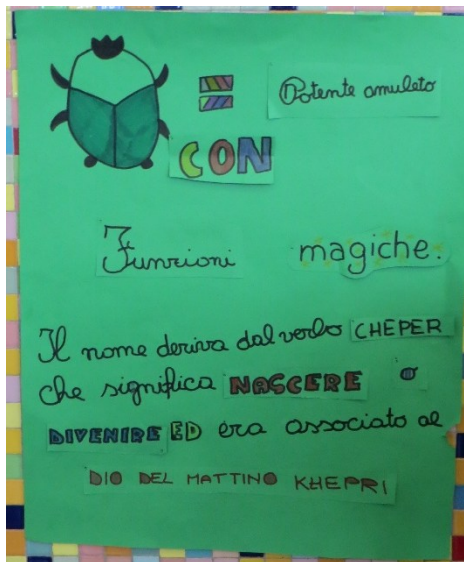 = Potente amuleto
CON
Funzioni magiche.
Il nome deriva dal verbo CHEPER
che significa NASCERE o
DIVENIRE ED era associato al
DIO DEL MATTINO KHEPRI